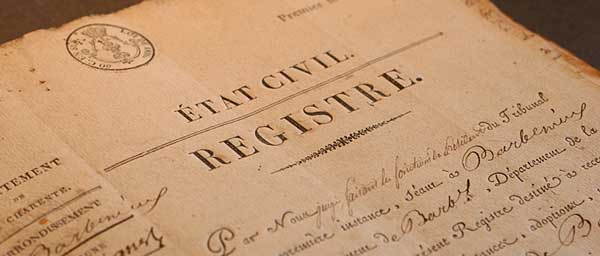 Premier
ÉTAT CIVIL.
REGISTRE.
TEMENT
DE LA
CHARENTE.
RONDISSEMENT
DE
Barbezieux
Par Nous juge faisant les fonctions de Président du Tribunal
première instance, séant à Barbezieux
de Barb.x, Département de la
présent Registre destiné à rece
adoptions,